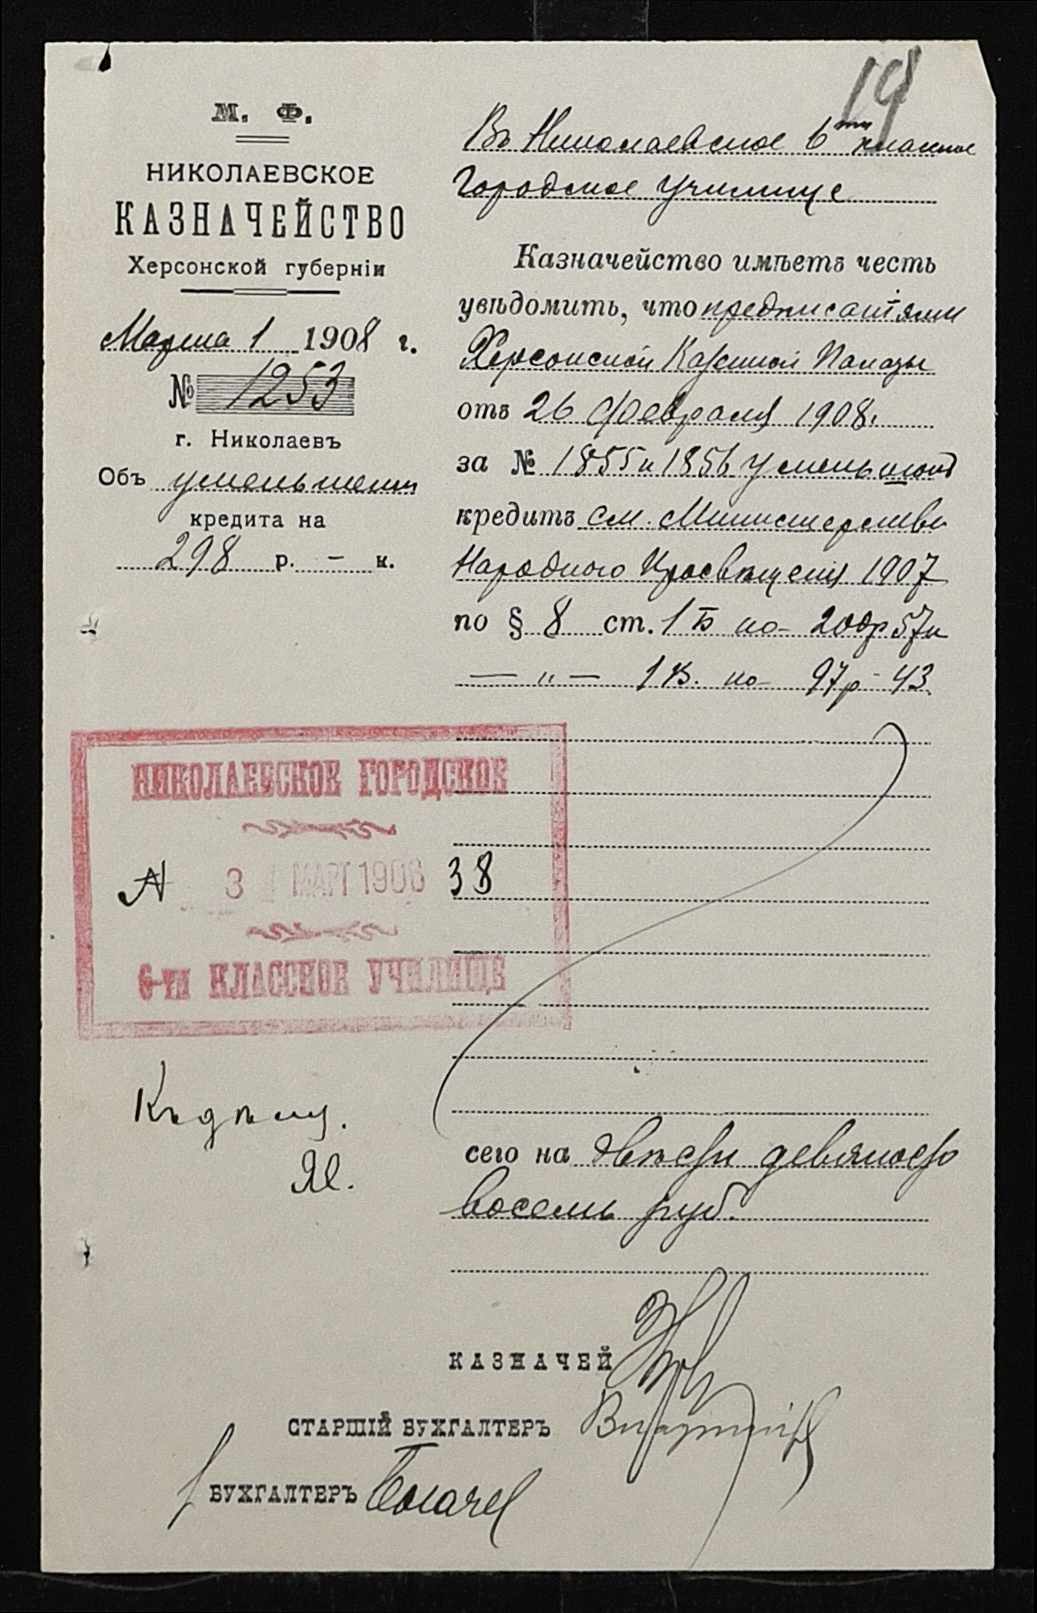 19
М. Ф.
НИКОЛАЕВСКОЕ
КАЗНАЧЕЙСТВО
Херсонской губерніи
Марта 1 1908 г.
№ 1253
г. Николаевъ
Объ уменьшеніи
кредита на
298 р. – к.
Въ Николаевское 6ти классное
Городское училище
Казначейство имѣетъ честь
увѣдомить, что предписаніями
Херсонской Казенной Палаты
отъ 26 февраля 1908.
за № 1855 и 1856 уменьшонъ
кредитъ см. Министерства
Народнаго Просвѣщенія 1907
по § 8 ст. 1 Б по – 200р 57к
— „ — 1 В. по – 97р – 43
НИКОЛАЕВСКОЕ ГОРОДСКОЕ
№ 3 МАРТ 1908 38
6-ти КЛАССНОЕ УЧИЛИЩЕ
Къ дѣлу.
сего на двѣсти девяносто
восемь руб.
КАЗНАЧЕЙ
СТАРШІЙ БУХГАЛТЕРЪ
БУХГАЛТЕРЪ